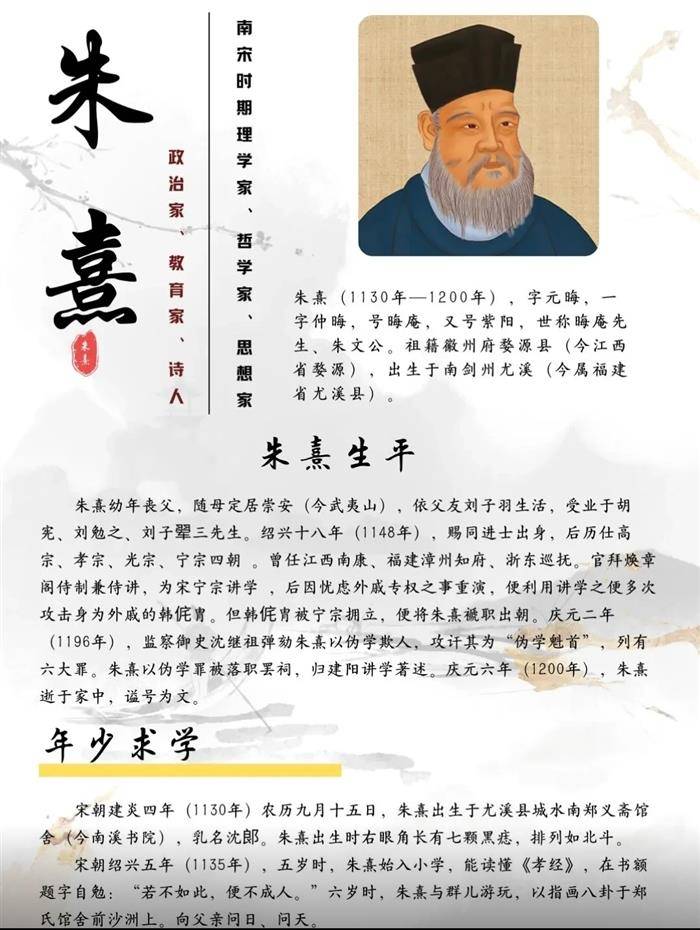 朱熹
南宋时期理学家、哲学家、思想家
政治家、教育家、诗人
朱熹
朱熹（1130年—1200年），字元晦，一
字仲晦，号晦庵，又号紫阳，世称晦庵先
生、朱文公。祖籍徽州府婺源县（今江西
省婺源），出生于南剑州尤溪（今属福建
省尤溪县）。
朱熹生平
朱熹幼年丧父，随母定居崇安（今武夷山），依父友刘子羽生活，受业于胡
宪、刘勉之、刘子翚三先生。绍兴十八年（1148年），赐同进士出身，后历仕高
宗、孝宗、光宗、宁宗四朝 。曾任江西南康、福建漳州知府、浙东巡抚。官拜焕章
阁侍制兼侍讲，为宋宁宗讲学 ，后因忧虑外戚专权之事重演，便利用讲学之便多次
攻击身为外戚的韩侂胄。但韩侂胄被宁宗拥立，便将朱熹褫职出朝。庆元二年
（1196年），监察御史沈继祖弹劾朱熹以伪学欺人，攻讦其为“伪学魁首”，列有
六大罪。朱熹以伪学罪被落职罢祠，归建阳讲学著述。庆元六年（1200年），朱熹
逝于家中，谥号为文。
年少求学
宋朝建炎四年（1130年）农历九月十五日，朱熹出生于尤溪县城水南郑义斋馆
舍（今南溪书院），乳名沈郎。朱熹出生时右眼角长有七颗黑痣，排列如北斗。
宋朝绍兴五年（1135年），五岁时，朱熹始入小学，能读懂《孝经》，在书额
题字自勉：“若不如此，便不成人。”六岁时，朱熹与群儿游玩，以指画八卦于郑
氏馆舍前沙洲上。向父亲问日、问天。